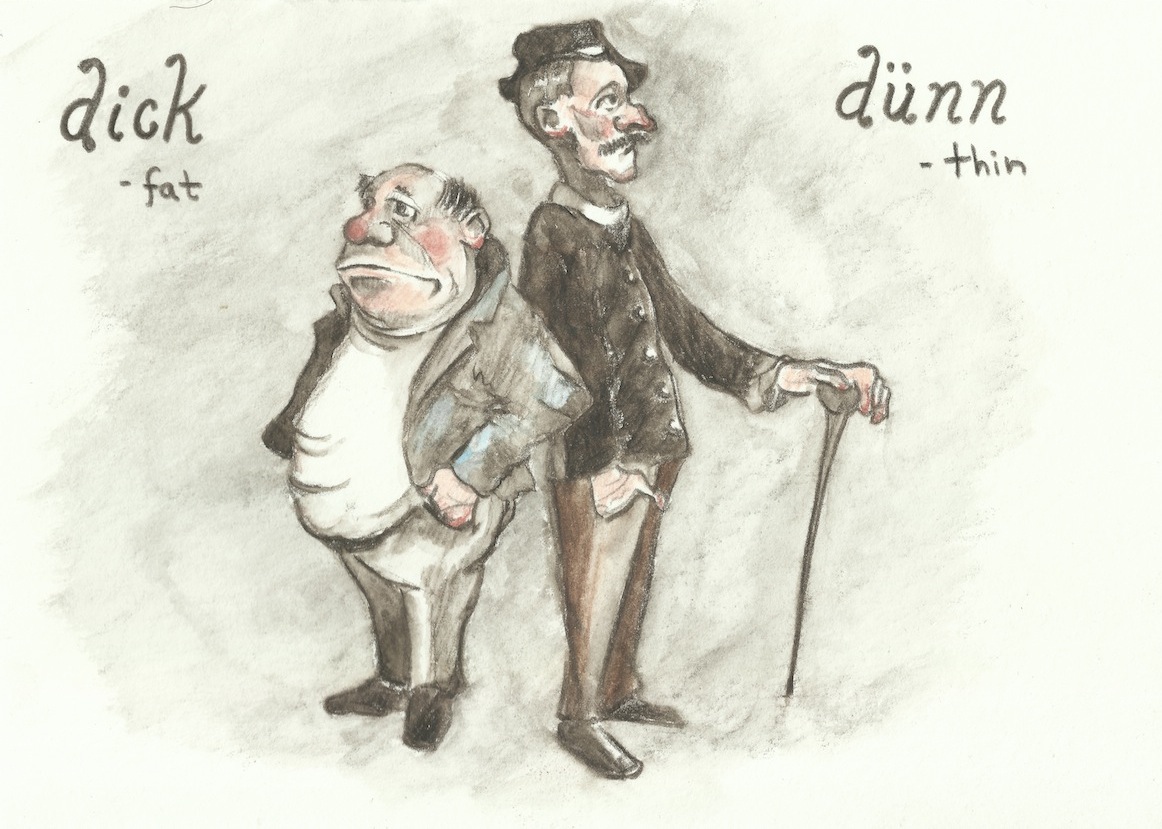 dick
- fat
dünn
- thin